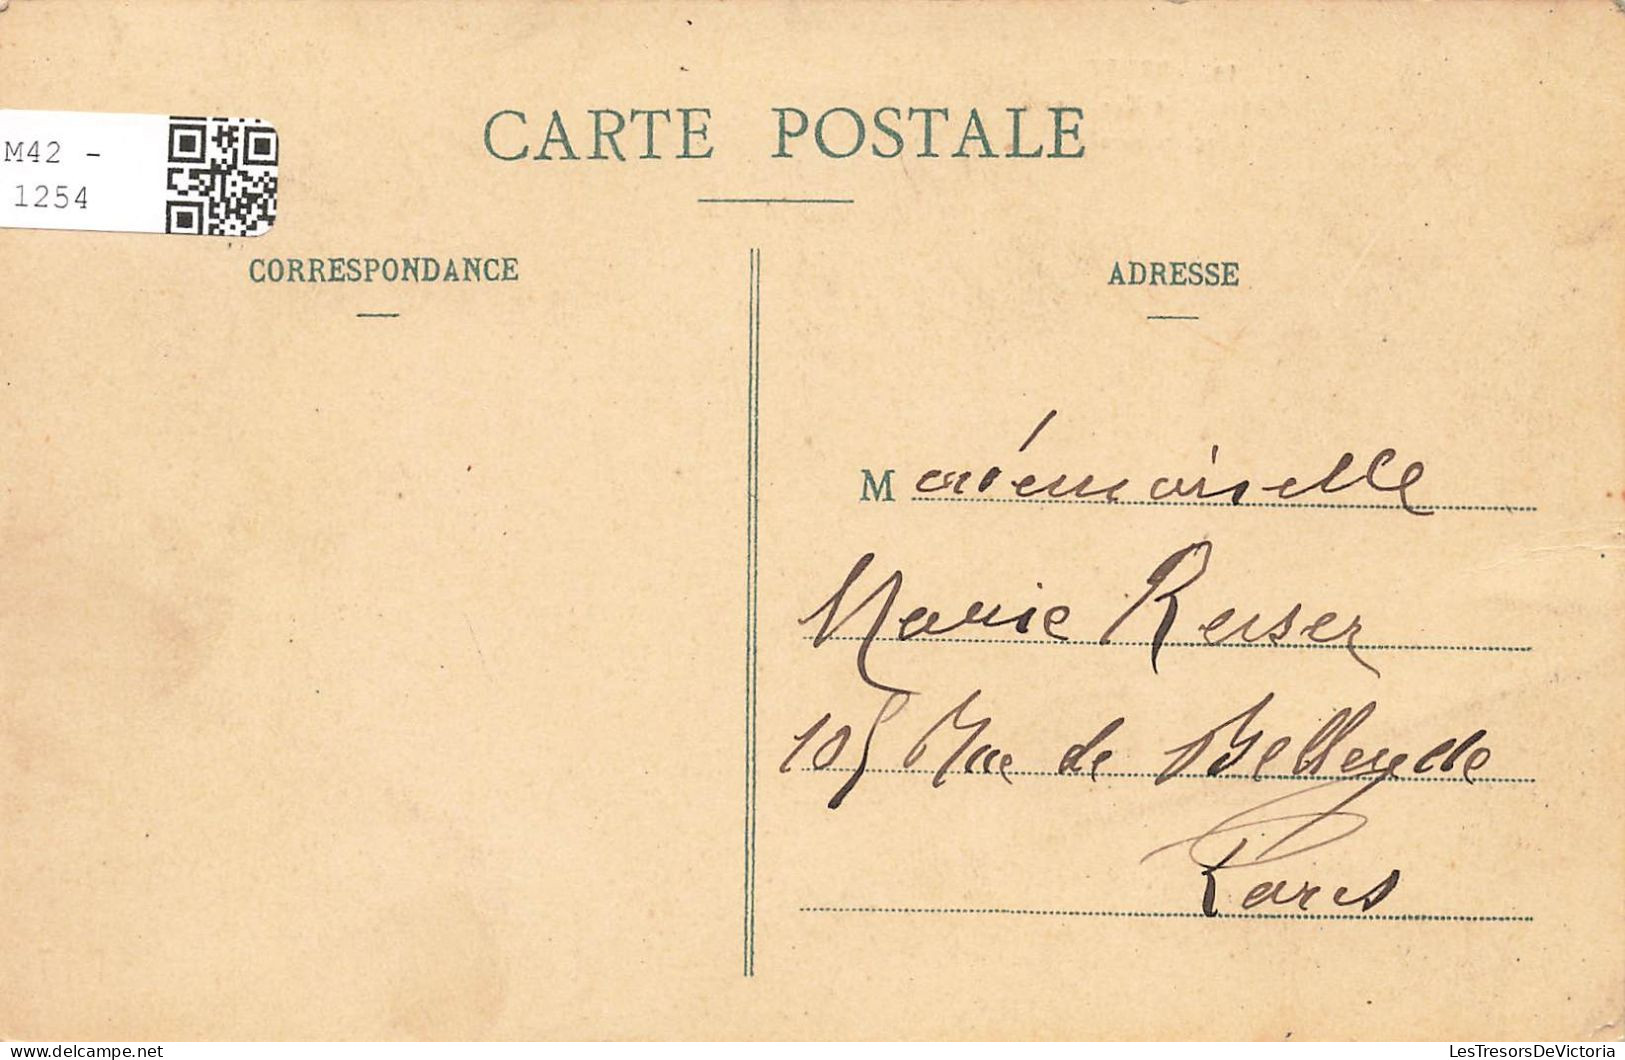 CARTE POSTALE
M42 -
1254
CORRESPONDANCE
ADRESSE
Mademoiselle
Marie Reiser
105 Rue de Belleville
Paris
LesTresorsDeVictoria
delcampe.net